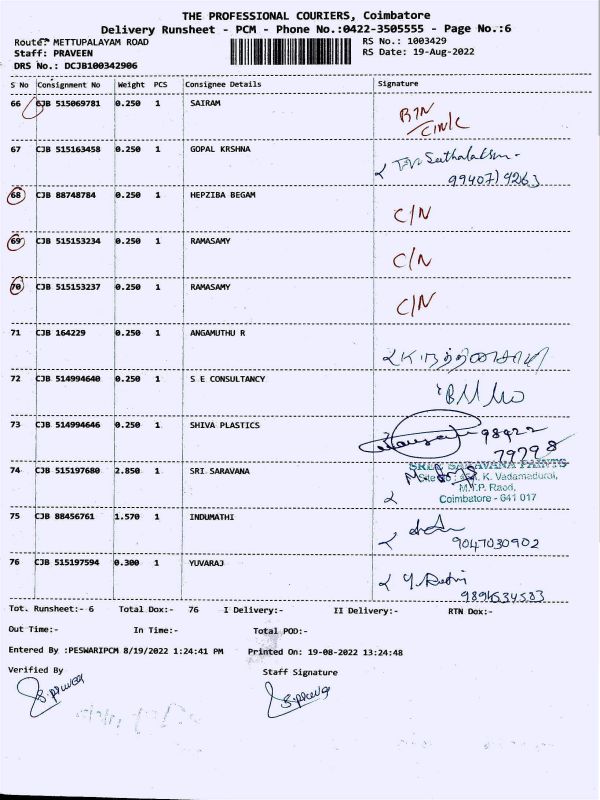 THE PROFESSIONAL COURIERS, Coimbatore
Delivery Runsheet - PCM - Phone No.:0422-3505555 - Page No.:6
Route: METTUPALAYAM ROAD RS No.: 1003429
Staff: PRAVEEN RS Date: 19-Aug-2022
DRS No.: DCJB100342906
S No Consignment No Weight PCS Consignee Details Signature
66 CJB 515069781 0.250 1 SAIRAM RTN
67 CJB 515163458 0.250 1 GOPAL KRSHNA
68 CJB 88748784 0.250 1 HEPZIBA BEGAM C/N
69 CJB 515153234 0.250 1 RAMASAMY C/N
70 CJB 515153237 0.250 1 RAMASAMY C/N
71 CJB 164229 0.250 1 ANGAMUTHU R
72 CJB 514994640 0.250 1 S E CONSULTANCY
73 CJB 514994646 0.250 1 SHIVA PLASTICS 98422
79798
74 CJB 515197680 2.850 1 SRI SARAVANA SREE SARAVANA PAINTS
K. Vadamadurai,
M.T.P. Raod,
Coimbatore - 641 017
75 CJB 88456761 1.570 1 INDUMATHI
9047030902
76 CJB 515197594 0.300 1 YUVARAJ
9894534583
Tot. Runsheet:- 6 Total Dox:- 76 I Delivery:- II Delivery:- RTN Dox:-
Out Time:- In Time:- Total POD:-
Entered By :PESWARIPCM 8/19/2022 1:24:41 PM Printed On: 19-08-2022 13:24:48
Verified By Staff Signature